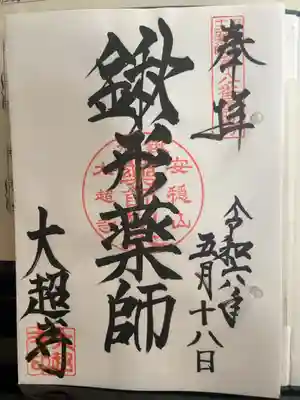 奉拝
令和六年
五月十八日
鍬形薬師
安穏山
大超寺
大超寺